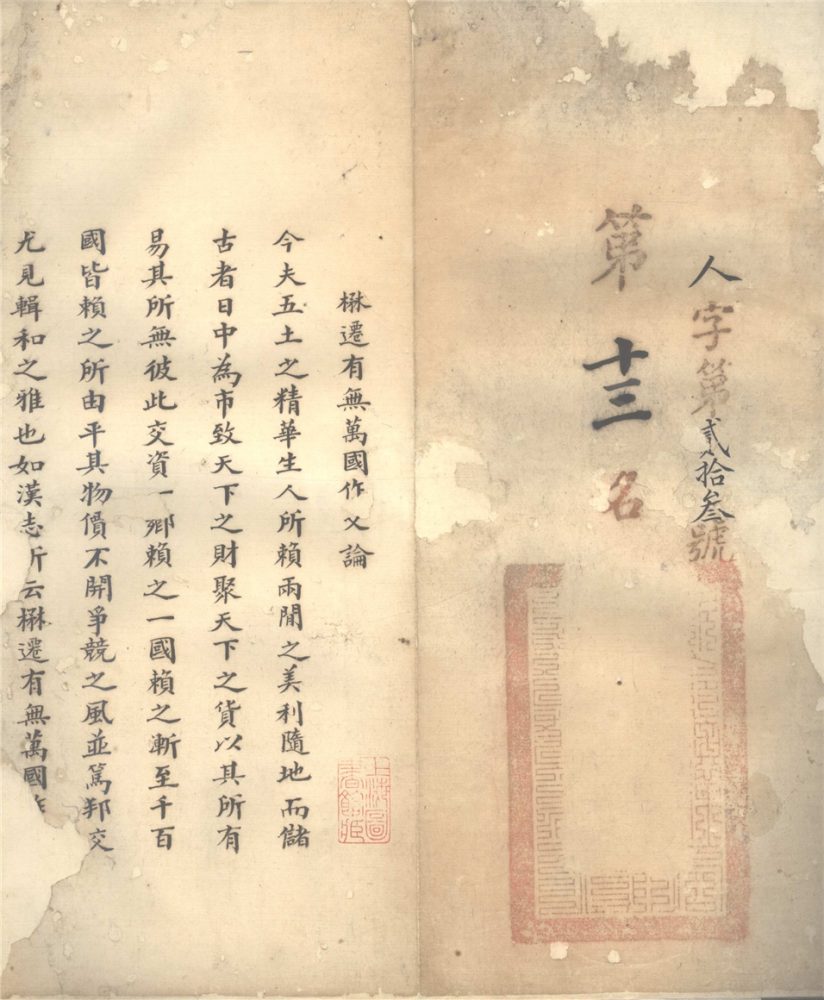 人字第貳拾叁號
第十三名
楙遷有無萬國作乂論
今夫五土之精華生人所賴兩閒之美利隨地而儲
古者日中為市致天下之財聚天下之貨以其所有
易其所無彼此交資一鄉賴之一國賴之漸至千百
國皆賴之所由平其物價不開爭競之風並篤邦交
尤見輯和之雅也如漢志所云楙遷有無萬國作
上海圖
書館藏